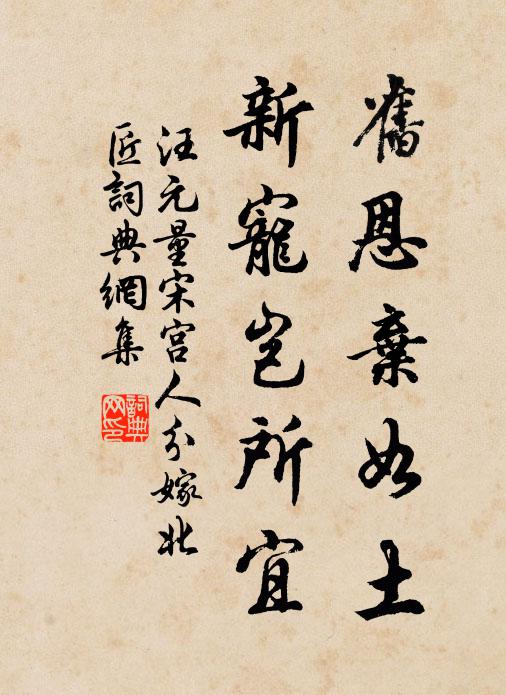 舊恩棄如土
新寵豈所宜
汪元量宋宮人分嫁北
匠詞典網集
詞典
网印